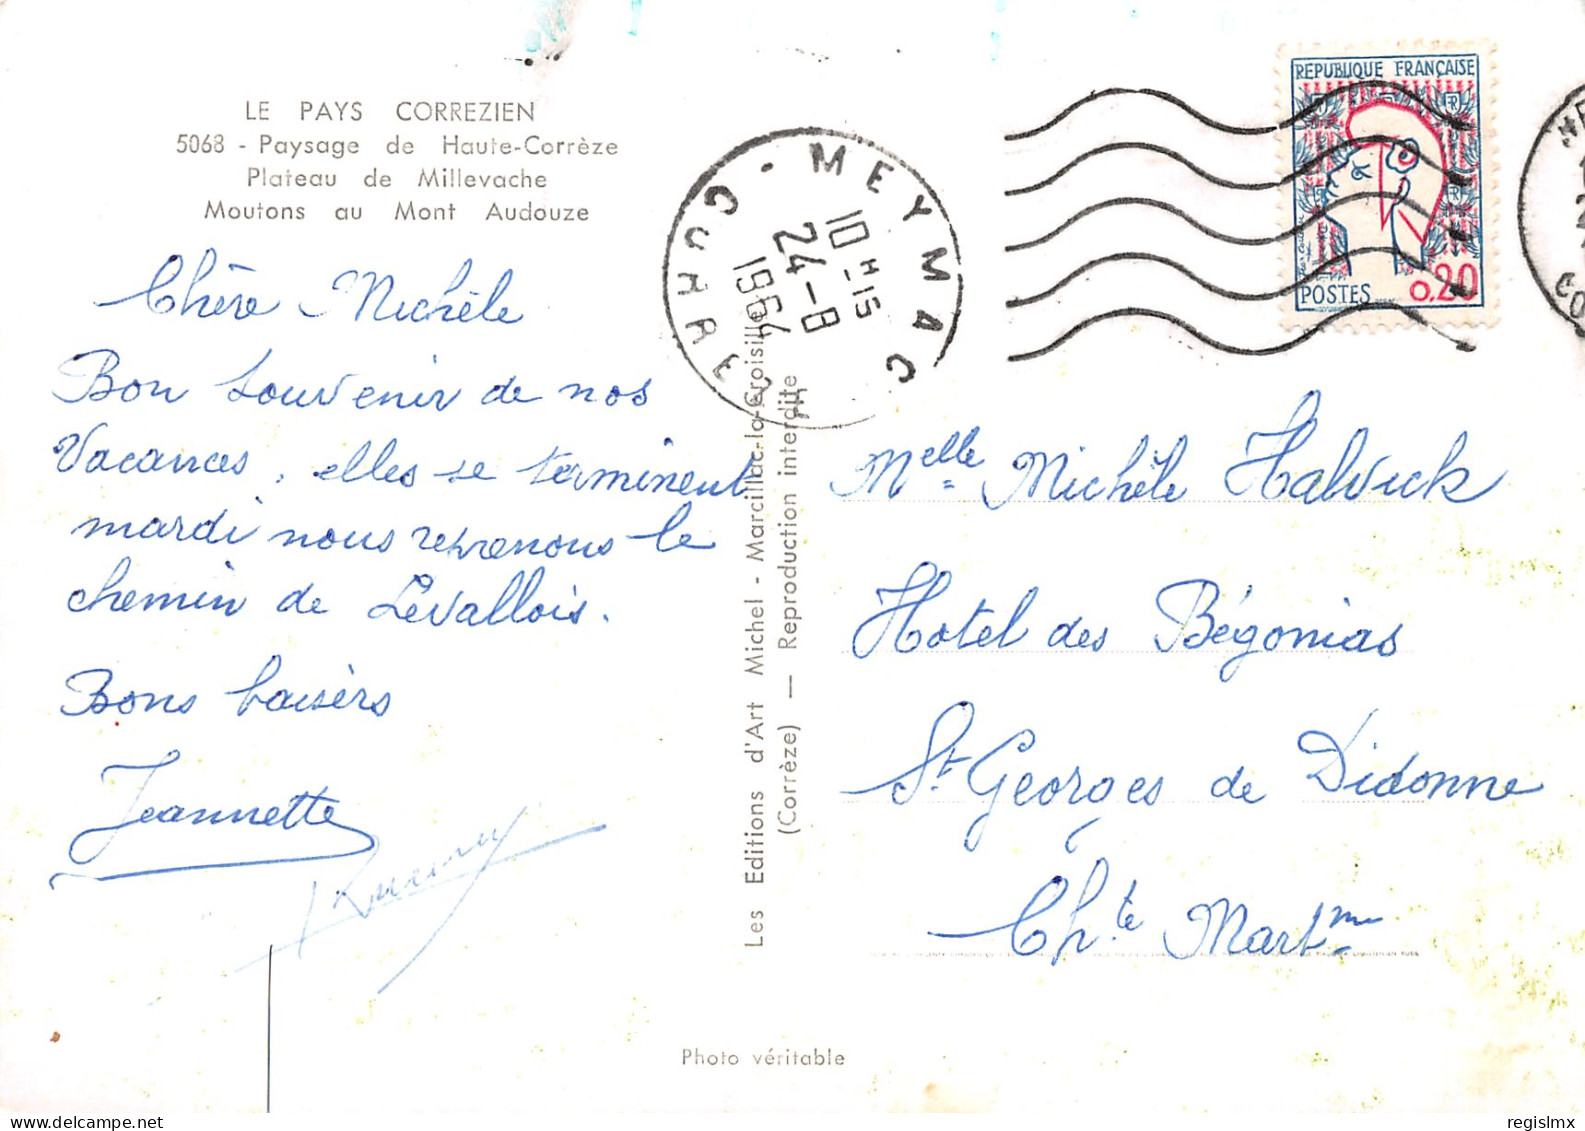 LE PAYS CORREZIEN
5068 - Paysage de Haute-Corrèze
Plateau de Millevache
Moutons au Mont Audouze
Chère Michèle
Bon souvenir de nos
Vacances, elles se terminent
mardi nous reprenons le
chemin de Levallois.
Bons baisers
Jeannette
Les Editions d'Art Michel - Marcillac-la-Croisille
(Corrèze) — Reproduction interdite
MEYMAC
10H15
24-8
1964
CORREZE
REPUBLIQUE FRANÇAISE
POSTES 0,20
Melle Michèle Halvick
Hotel des Bégonias
St Georges de Didonne
Chte Martme
Photo véritable
regislmx